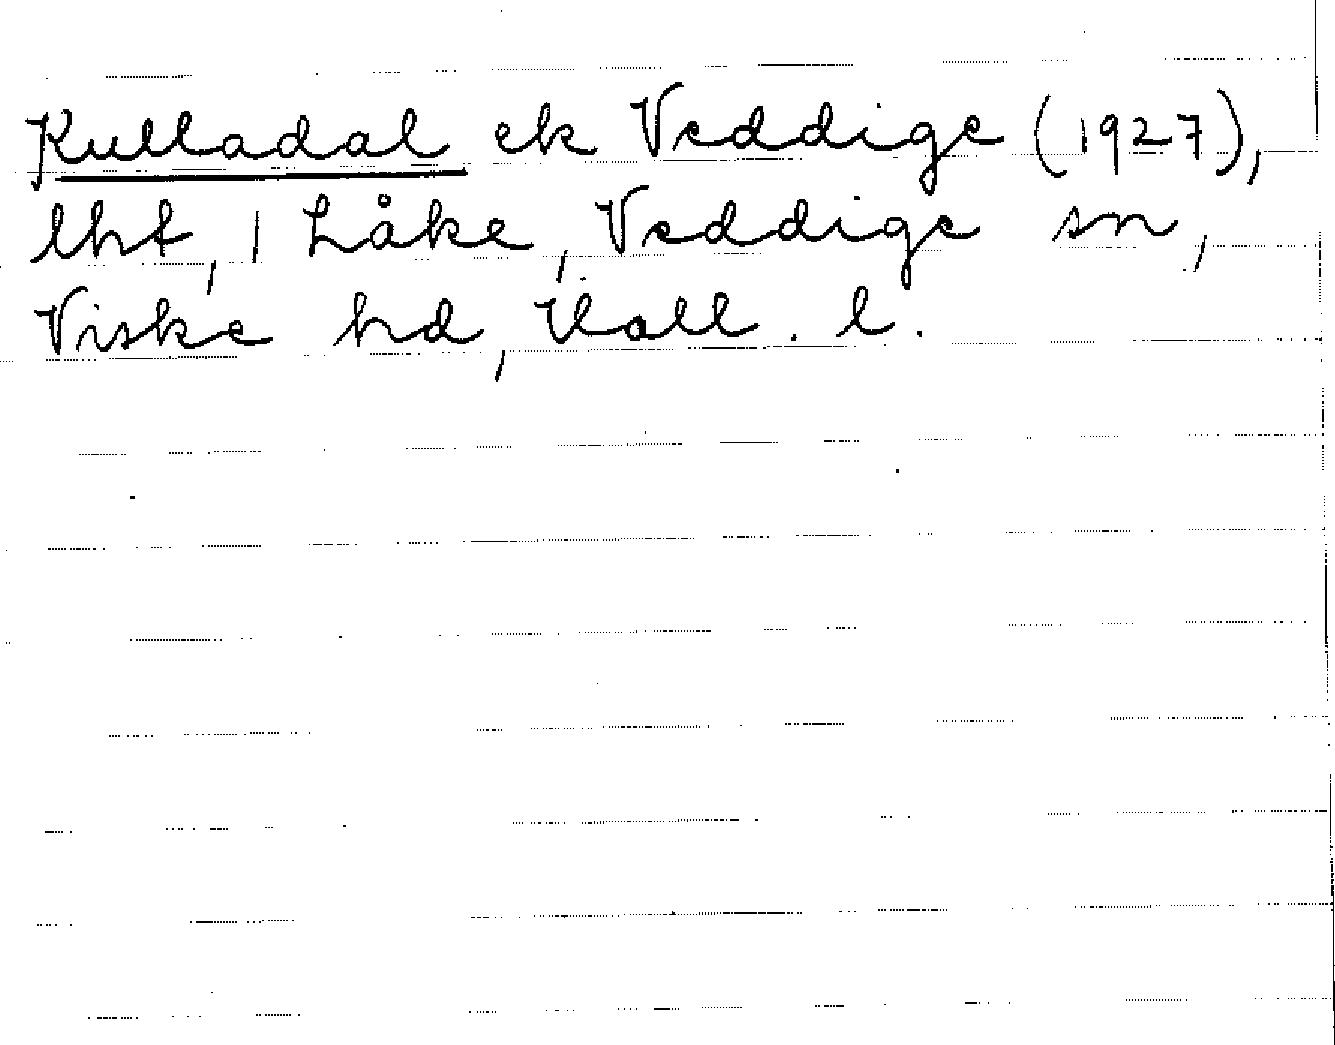 Kulladal ek Veddige (1927),
lht, 1 Låke, Veddige sn,
Viske hd, Hall. l.